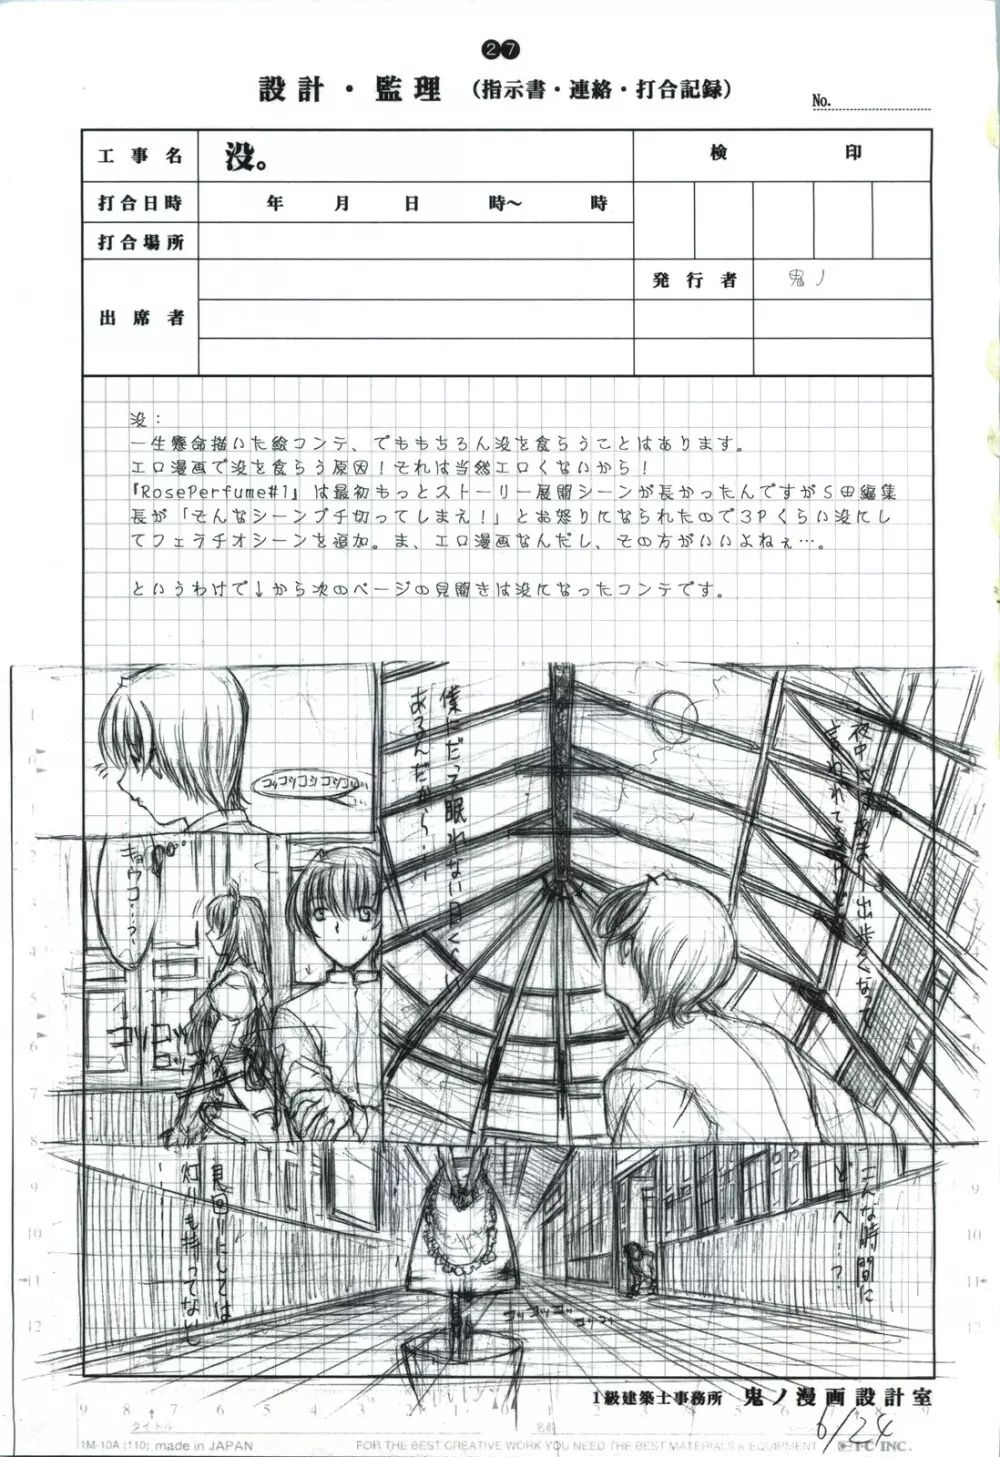 27
設計・監理 (指示書・連絡・打合記録)
No.
工事名 没。
検 印
打合日時 年 月 日 時～ 時
打合場所
発行者 鬼ノ
出席者
没:
一生懸命描いた絵コンテ、でももちろん没を食らうことはあります。
エロ漫画で没を食らう原因!それは当然エロくないから!
『RosePerfume#1』は最初もっとストーリー展開シーンが長かったんですがS田編集
長が「そんなシーンブチ切ってしまえ!」とお怒りになられたので3Pくらい没にし
てフェラチオシーンを追加。ま、エロ漫画なんだし、その方がいいよねぇ…。
というわけで↓から次のページの見開きは没になったコンテです。
夜中に
出歩くなって
言われてるけど
僕にだって眠れない日くらい
あるんだから……
コツコツコツコツコツ
キョウコ…?
こんな時間に
どこへ……?
見回りにしては
灯りも持ってなし
1級建築士事務所 鬼ノ漫画設計室
6/24
タイトル
名前
1M-10A (110) made in JAPAN
FOR THE BEST CREATIVE WORK YOU NEED THE BEST MATERIALS & EQUIPMENT
I-C INC.